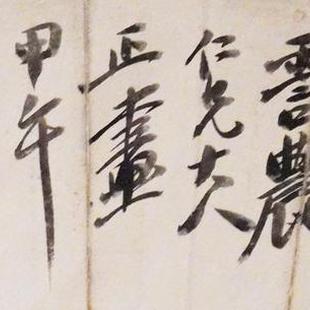 農
仁兄大人
正畫
甲午